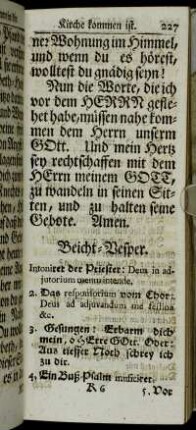 Kirche kommen ist. 227
ner Wohnung im Himmel,
und wenn du es hörest,
wollest du gnädig seyn!
Nun die Worte, die ich
vor dem HERRN gefle-
het habe, müssen nahe kom-
men dem Herrn unserm
GOtt. Und mein Hertz
sey rechtschaffen mit dem
HErrn meinem GOTT,
zu wandeln in seinen Sit-
ten, und zu halten seine
Gebote. Amen.
Beicht-Vesper.
Intoniret der Priester: Deus in ad-
jutorium meum intende.
2. Das responsorium vom Chor:
Deus ad adjuvandum me festina
&c.
3. Gesungen: Erbarm dich
mein, o HErre GOtt. Oder:
Aus tieffer Noth schrey ich
zu dir.
4. Ein Buß-Psalm musiciret.
K 6
5. Vor